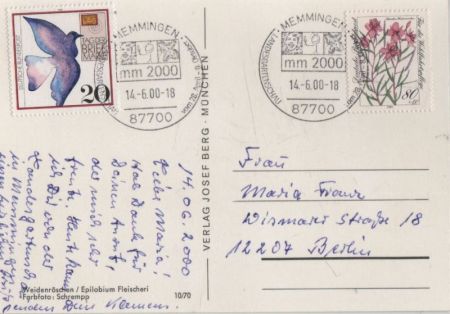 TAG DER
BRIEF
20
MEMMINGEN
mm 2000
14.-6.00-18
87700
MEMMINGEN
mm 2000
14.-6.00-18
87700
80
VERLAG JOSEF BERG · MÜNCHEN
14.06.2000
Liebe Maria!
Hab Dank für
Deinen
der mich sehr
freute. Heute kann
ich Dir von der
Landesgartenschau
in Memmingen
Dein Klemens.
Frau
Maria Franz
Wismarer Straße 18
12207 Berlin
Weidenröschen / Epilobium Fleischeri
Farbfoto: Schrempp
10/70